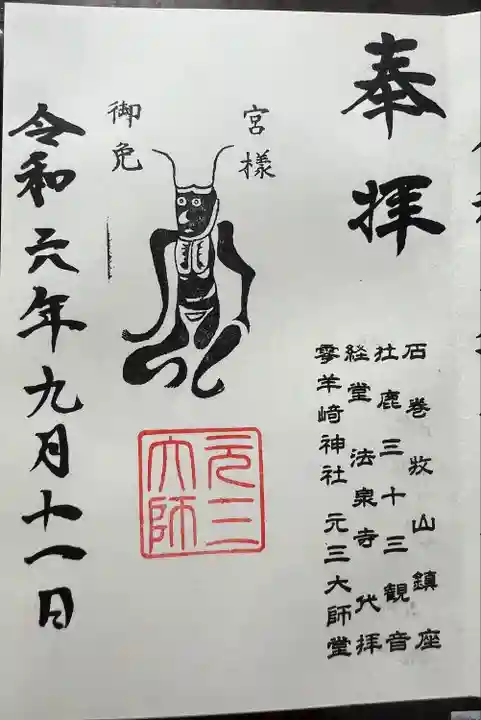 奉拝
石巻牧山鎮座
牡鹿三十三観音
経堂 法泉寺 代拝
零羊崎神社 元三大師堂
宮様
御免
元三
大師
令和六年九月十一日